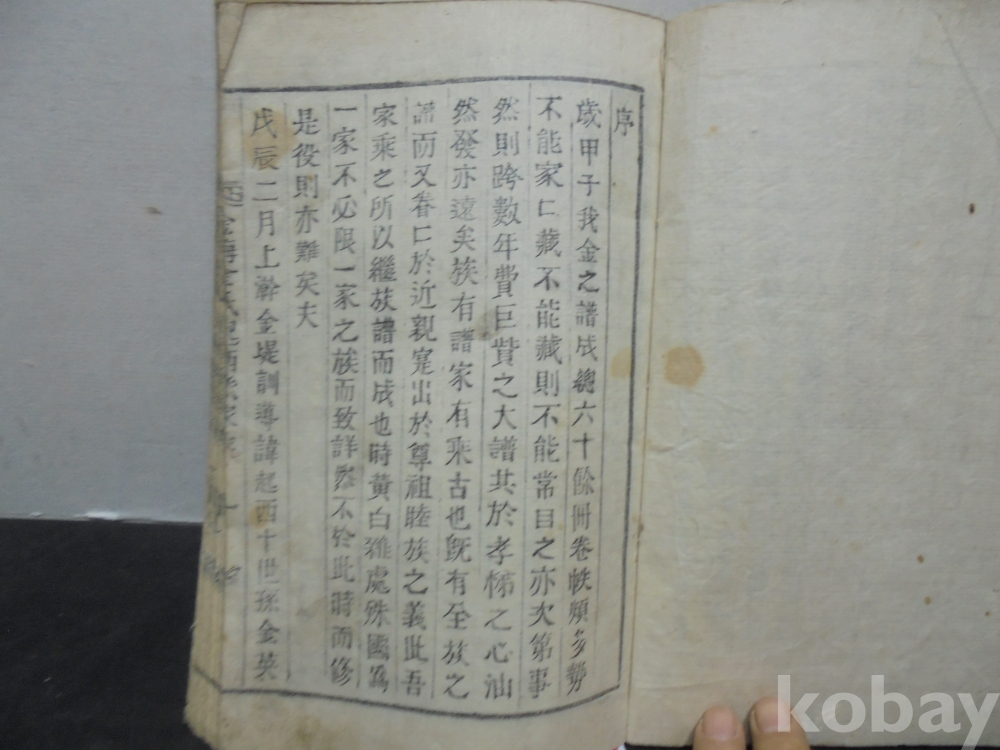 序
歲甲子我金之譜成總六十餘冊卷帙頗多勢
不能家口藏不能藏則不能常目之亦次第事
然則跨數年費巨貲之大譜其於孝悌之心油
然發亦遠矣族有譜家有乘古也旣有全族之
譜而又眷口於近親寔出於尊祖睦族之義此吾
家乘之所以繼族譜而成也時黃白雜處殊國爲
一家不必限一家之族而致詳然不於此時而修
是役則亦難矣夫
戊辰二月上澣金堤訓導諱起西十世孫金英
kobay